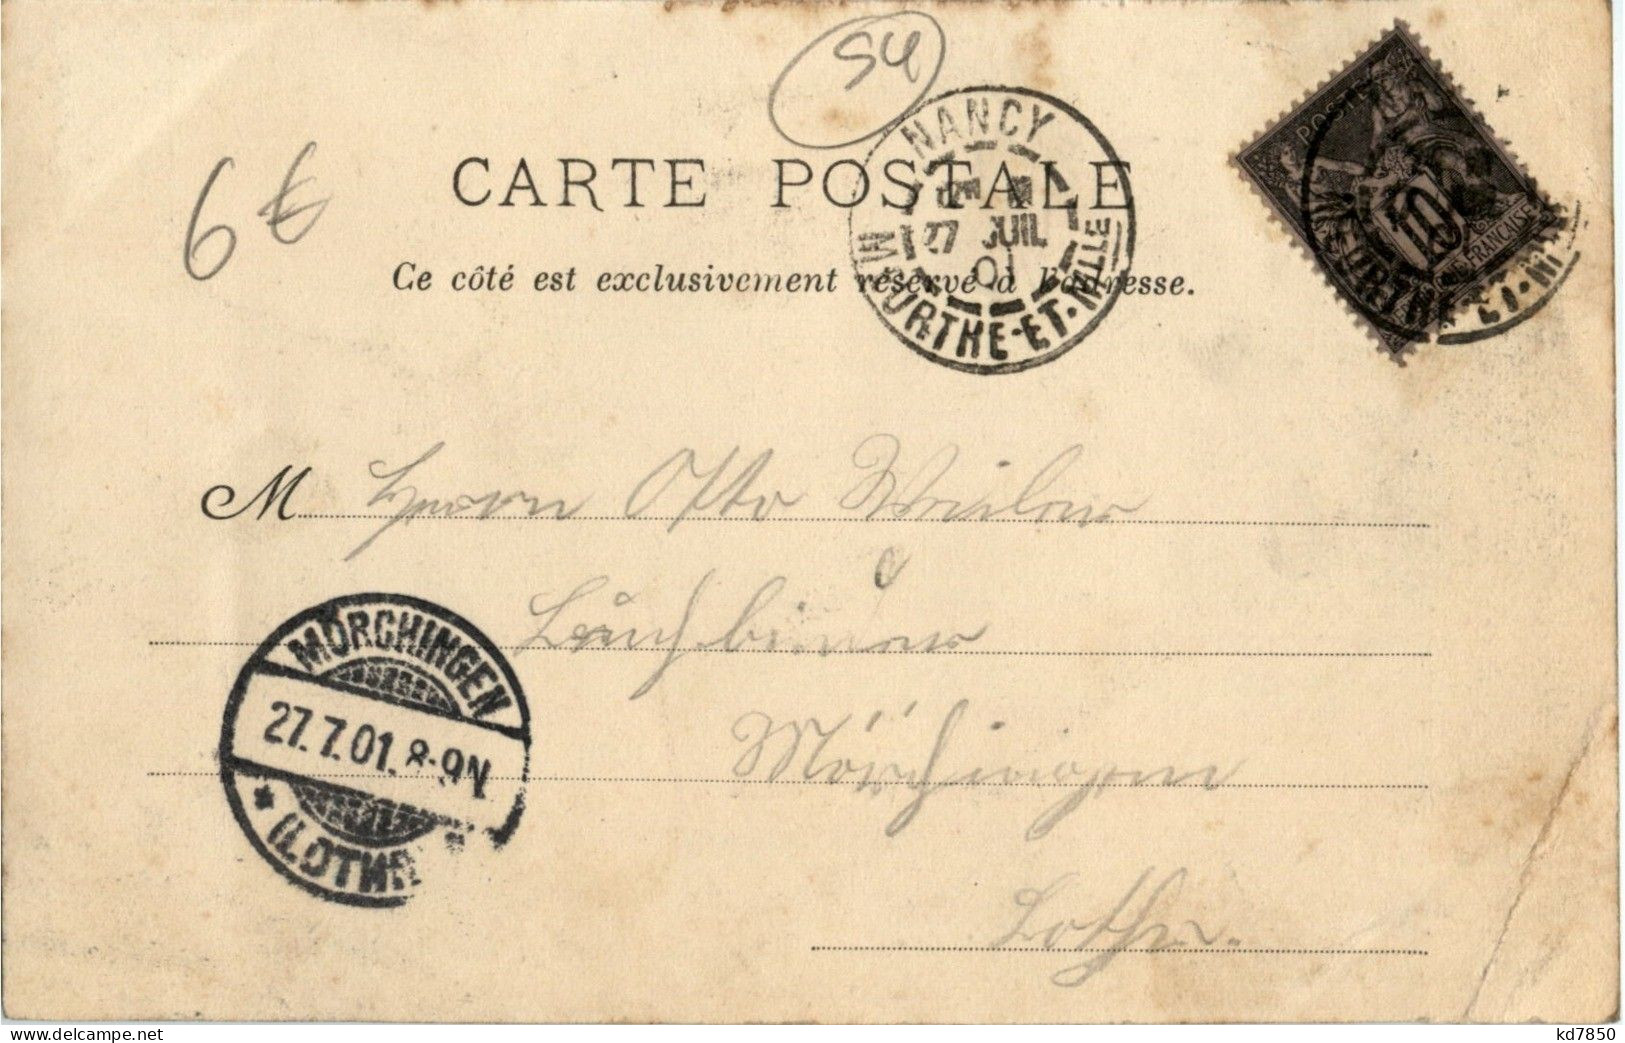 54
6€
CARTE POSTALE
Ce côté est exclusivement réservé à l'adresse.
NANCY
27 JUIL
01
MEURTHE-ET-MLLE
POSTES
10
FRANÇAISE
MEURTHE-ET-M
M Herrn Otto
Buchbinder
Mörchingen
Lothr.
MÖRCHINGEN
27.7.01. 8-9N
* (LOTHR
delcampe.net
kd7850